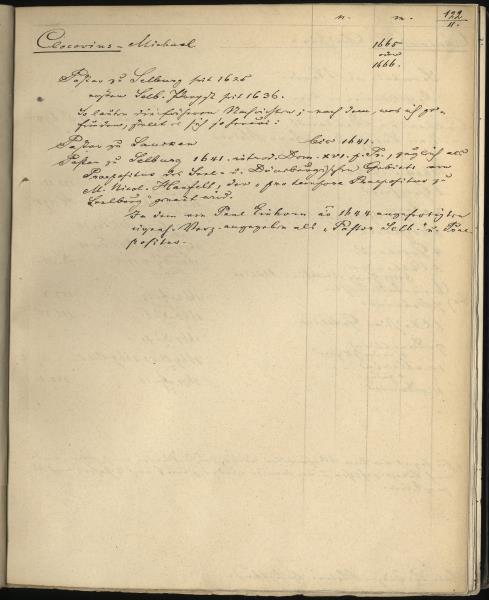 n. m. 122
II.
Clocovius - Michael. 1665
oder
1666.
Pastor zu Selburg seit 1625
erster Selb. Propst seit 1636.
So lauten die früheren Nachrichten; nach dem, was ich ge-
funden, stellt es sich so heraus:
Pastor zu Lauckan bis 1641.
Pastor zu Selburg 1641. introd. Dom. XVI. p. Tr., zugleich als
Praepositus des Seel- u. Dünaburgischen Gebiets von
M. Nicol. Hanfeld, der "pro tempore Praepositus zu
Seelburg" genannt wird.
In dem von Paul Einhorn ao 1644 angefertigten
Verz. angegeben als "Pastor Selb. u. Prae-
positus.